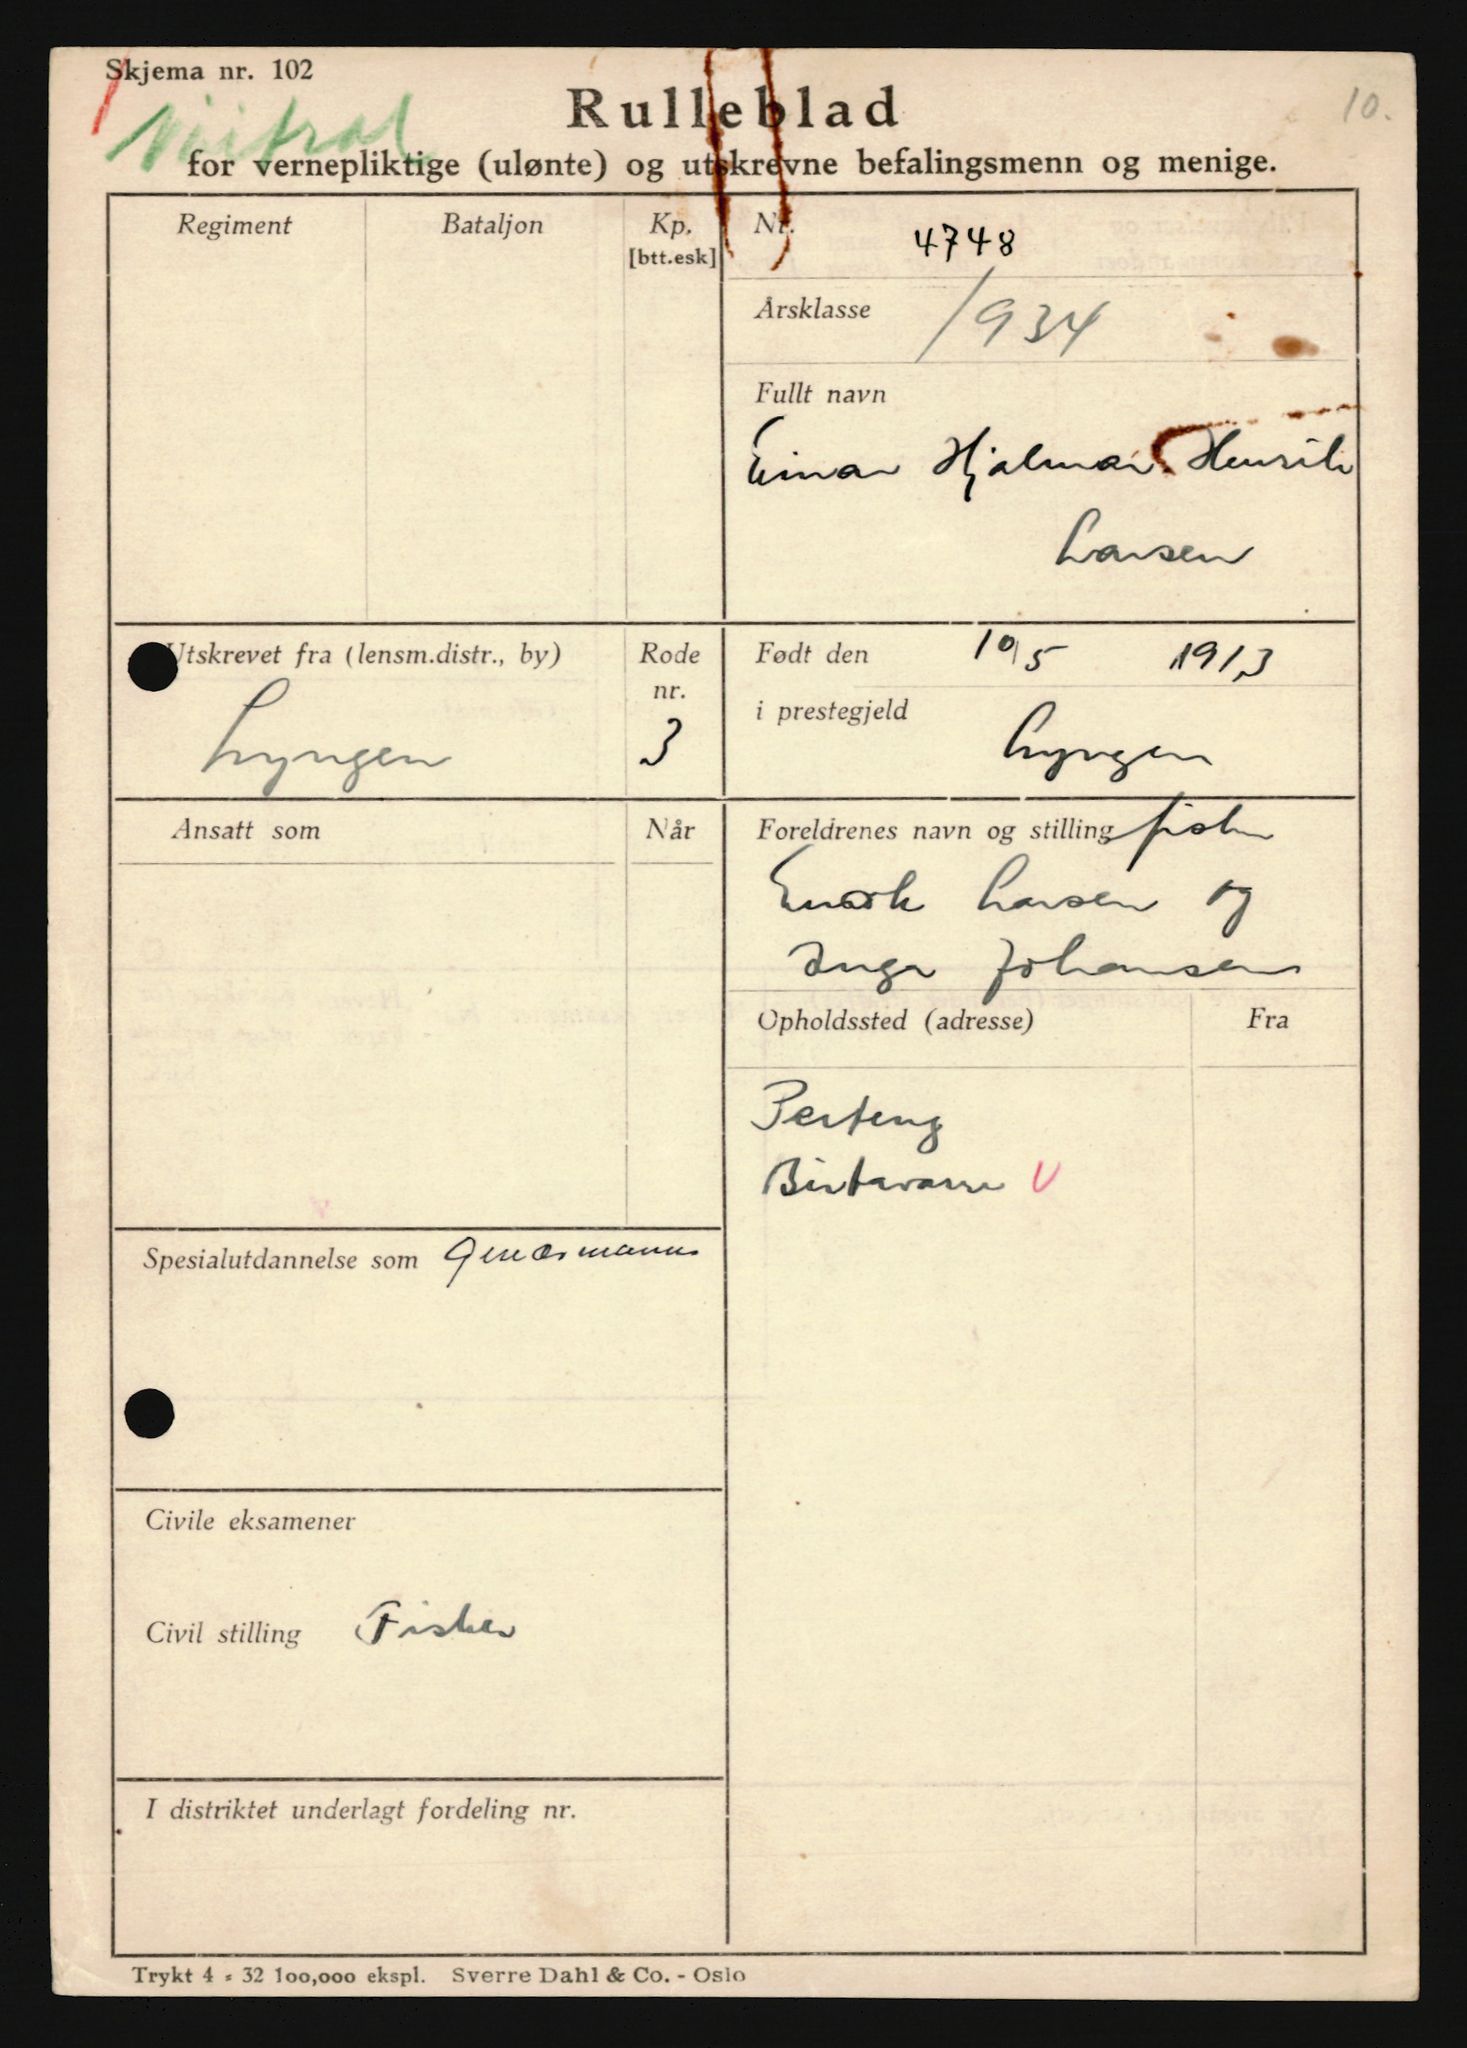 Skjema nr. 102
10.
Rulleblad
Mitral
for vernepliktige (ulønte) og utskrevne befalingsmenn og menige.
Regiment
Bataljon
Kp.
[btt.esk]
Nr. 4748
Årsklasse 1934
Fullt navn
Einar Hjalmar Henrik
Larsen
Utskrevet fra (lensm.distr., by)
Lyngen
Rode
nr.
3
Født den 10/5 1913
i prestegjeld
Lyngen
Ansatt som
Når
Foreldrenes navn og stilling fisker
Enok Larsen og
Inga Johansen
Opholdssted (adresse)
Fra
Perteng
Birtavarre V
Spesialutdannelse som
Civile eksamener
Civil stilling Fisker
I distriktet underlagt fordeling nr.
Trykt 4 - 32 100,000 ekspl. Sverre Dahl & Co. - Oslo